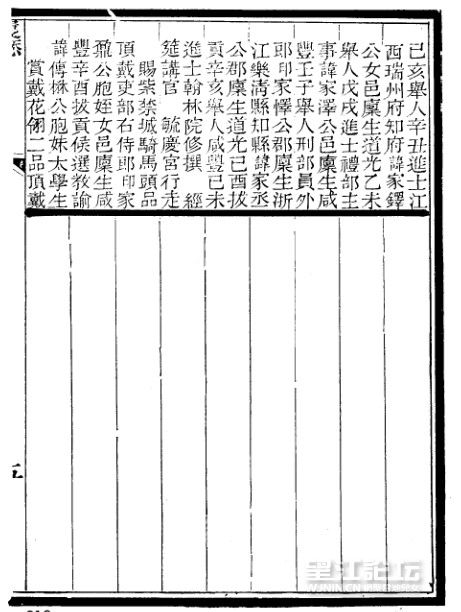 己亥舉人辛丑進士江
西瑞州府知府諱家鐸
公女邑廩生道光乙未
舉人戊戌進士禮部主
事諱家澤公邑廩生咸
豐壬子舉人刑部員外
郎印家懌公郡廩生浙
江樂清縣知縣諱家丞
公郡廩生道光己酉拔
貢辛亥舉人咸豐己未
進士翰林院修撰 經
筵講官 毓慶宮行走
賜紫禁城騎馬頭品
頂戴吏部右侍郎印家
鼐公胞姪女邑廩生咸
豐辛酉拔貢候選教諭
諱傳楙公胞妹太學生
賞戴花翎二品頂戴
五
望江论坛